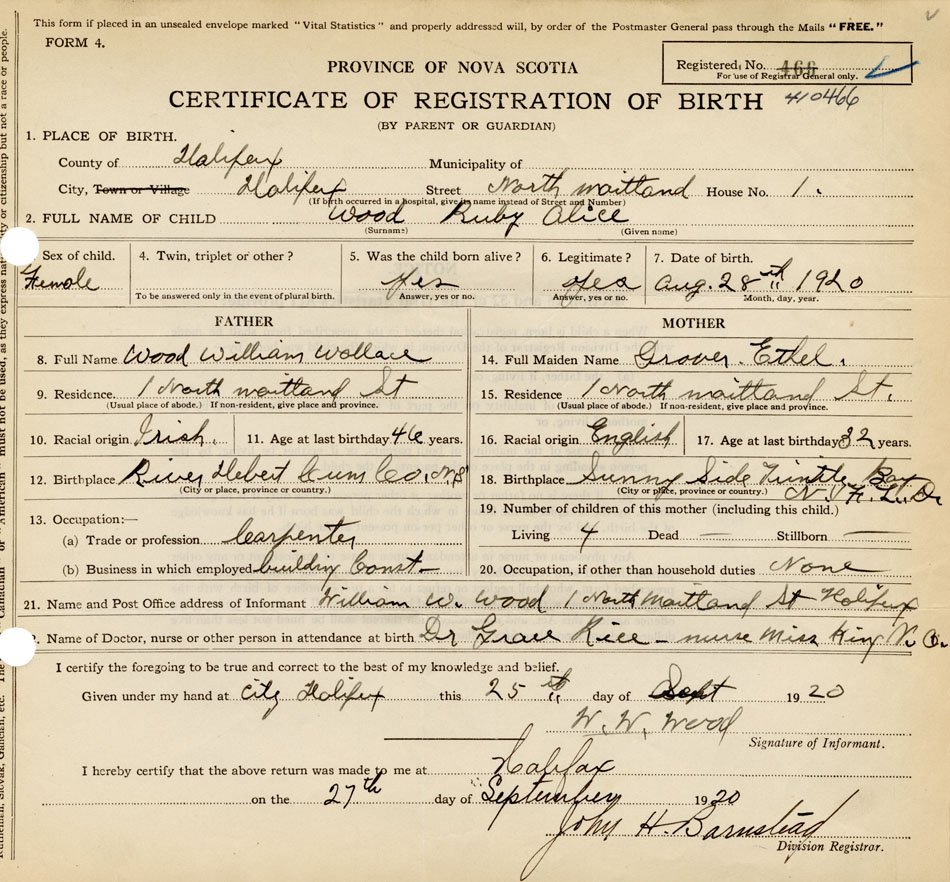 This form if placed in an unsealed envelope marked "Vital Statistics" and properly addressed will, by order of the Postmaster General pass through the Mails "FREE."
FORM 4.
Registered No. 466
For use of Registrar General only.
PROVINCE OF NOVA SCOTIA
CERTIFICATE OF REGISTRATION OF BIRTH 410466
(BY PARENT OR GUARDIAN)
1. PLACE OF BIRTH.
County of Halifax Municipality of
City, Town or Village Halifax Street North Maitland House No. 1.
(If birth occurred in a hospital, give its name instead of Street and Number)
2. FULL NAME OF CHILD Wood Ruby Alice
(Surname) (Given name)
Sex of child. 4. Twin, triplet or other? 5. Was the child born alive? 6. Legitimate? 7. Date of birth.
Female Yes Yes Aug. 28th 1920
To be answered only in the event of plural birth. Answer, yes or no. Answer, yes or no. Month, day, year.
FATHER
8. Full Name Wood William Wallace
9. Residence 1 North Maitland St
(Usual place of abode.) If non-resident, give place and province.
10. Racial origin Irish. 11. Age at last birthday 46 years.
12. Birthplace River Hebert Cum Co. NS
(City or place, province or country.)
13. Occupation:—
(a) Trade or profession Carpenter
(b) Business in which employed building Const
MOTHER
14. Full Maiden Name Grover. Ethel.
15. Residence 1 North Maitland St.
(Usual place of abode.) If non-resident, give place and province.
16. Racial origin English 17. Age at last birthday 32 years.
18. Birthplace Sunny Side Bay
(City or place, province or country.) N. F. L. D.
19. Number of children of this mother (including this child.)
Living 4 Dead — Stillborn —
20. Occupation, if other than household duties None
21. Name and Post Office address of Informant William W. Wood 1 North Maitland St Halifax
Name of Doctor, nurse or other person in attendance at birth Dr Grace Rice – nurse Miss King
I certify the foregoing to be true and correct to the best of my knowledge and belief.
Given under my hand at city Halifax this 25th day of Sept 1920
W. W. Wood
Signature of Informant.
I hereby certify that the above return was made to me at Halifax
on the 27th day of September 1920
John H. Barnstead
Division Registrar.